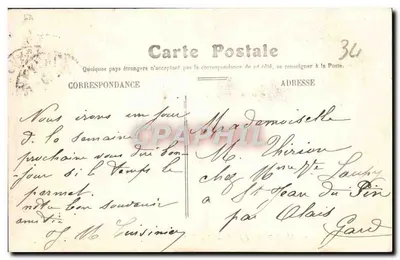 34
Carte Postale
Quelques pays étrangers n'acceptant pas la correspondance de ce côté, se renseigner à la Poste.
CORRESPONDANCE
ADRESSE
Nous irons un jour
d. la semaine
prochaine vous dire bon-
jour si le temps le
permet.
notre bon souvenir
amitié
M Tuisinier
Mademoiselle
M. Thirion
chez
à St Jean du Pin
par Alais
Gard
CPAPHIL